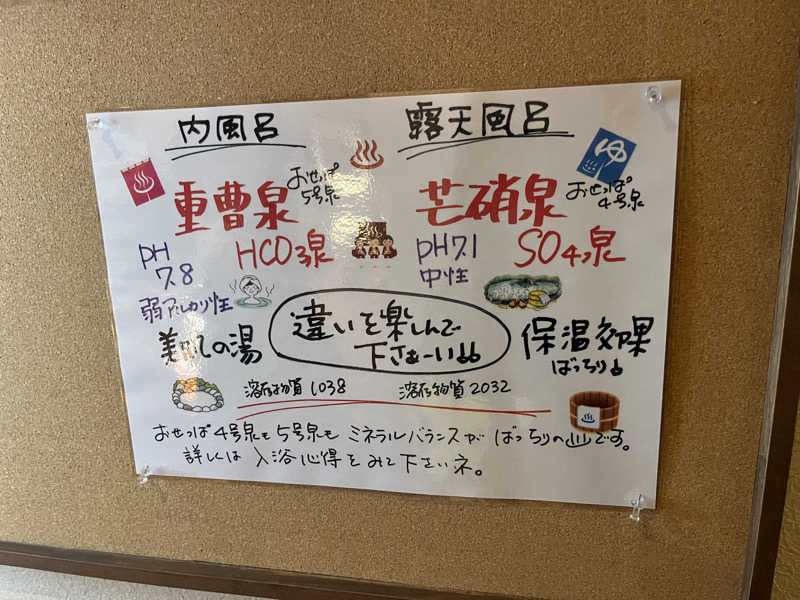 内風呂
重曹泉
おせっぱ
5号泉
HCO3泉
PH
7.8
弱アルカリ性
美肌の湯
溶存物質 1038
露天風呂
ゆ
芒硝泉
おせっぱ
4号泉
PH7.1
中性
SO4泉
保温効果
ばっちり
溶存物質 2032
違いを楽しんで
下さぁーい
おせっぱ4号泉も5号泉も ミネラルバランスが ばっちりの♨です。
詳しくは 入浴心得をみて下さいネ。